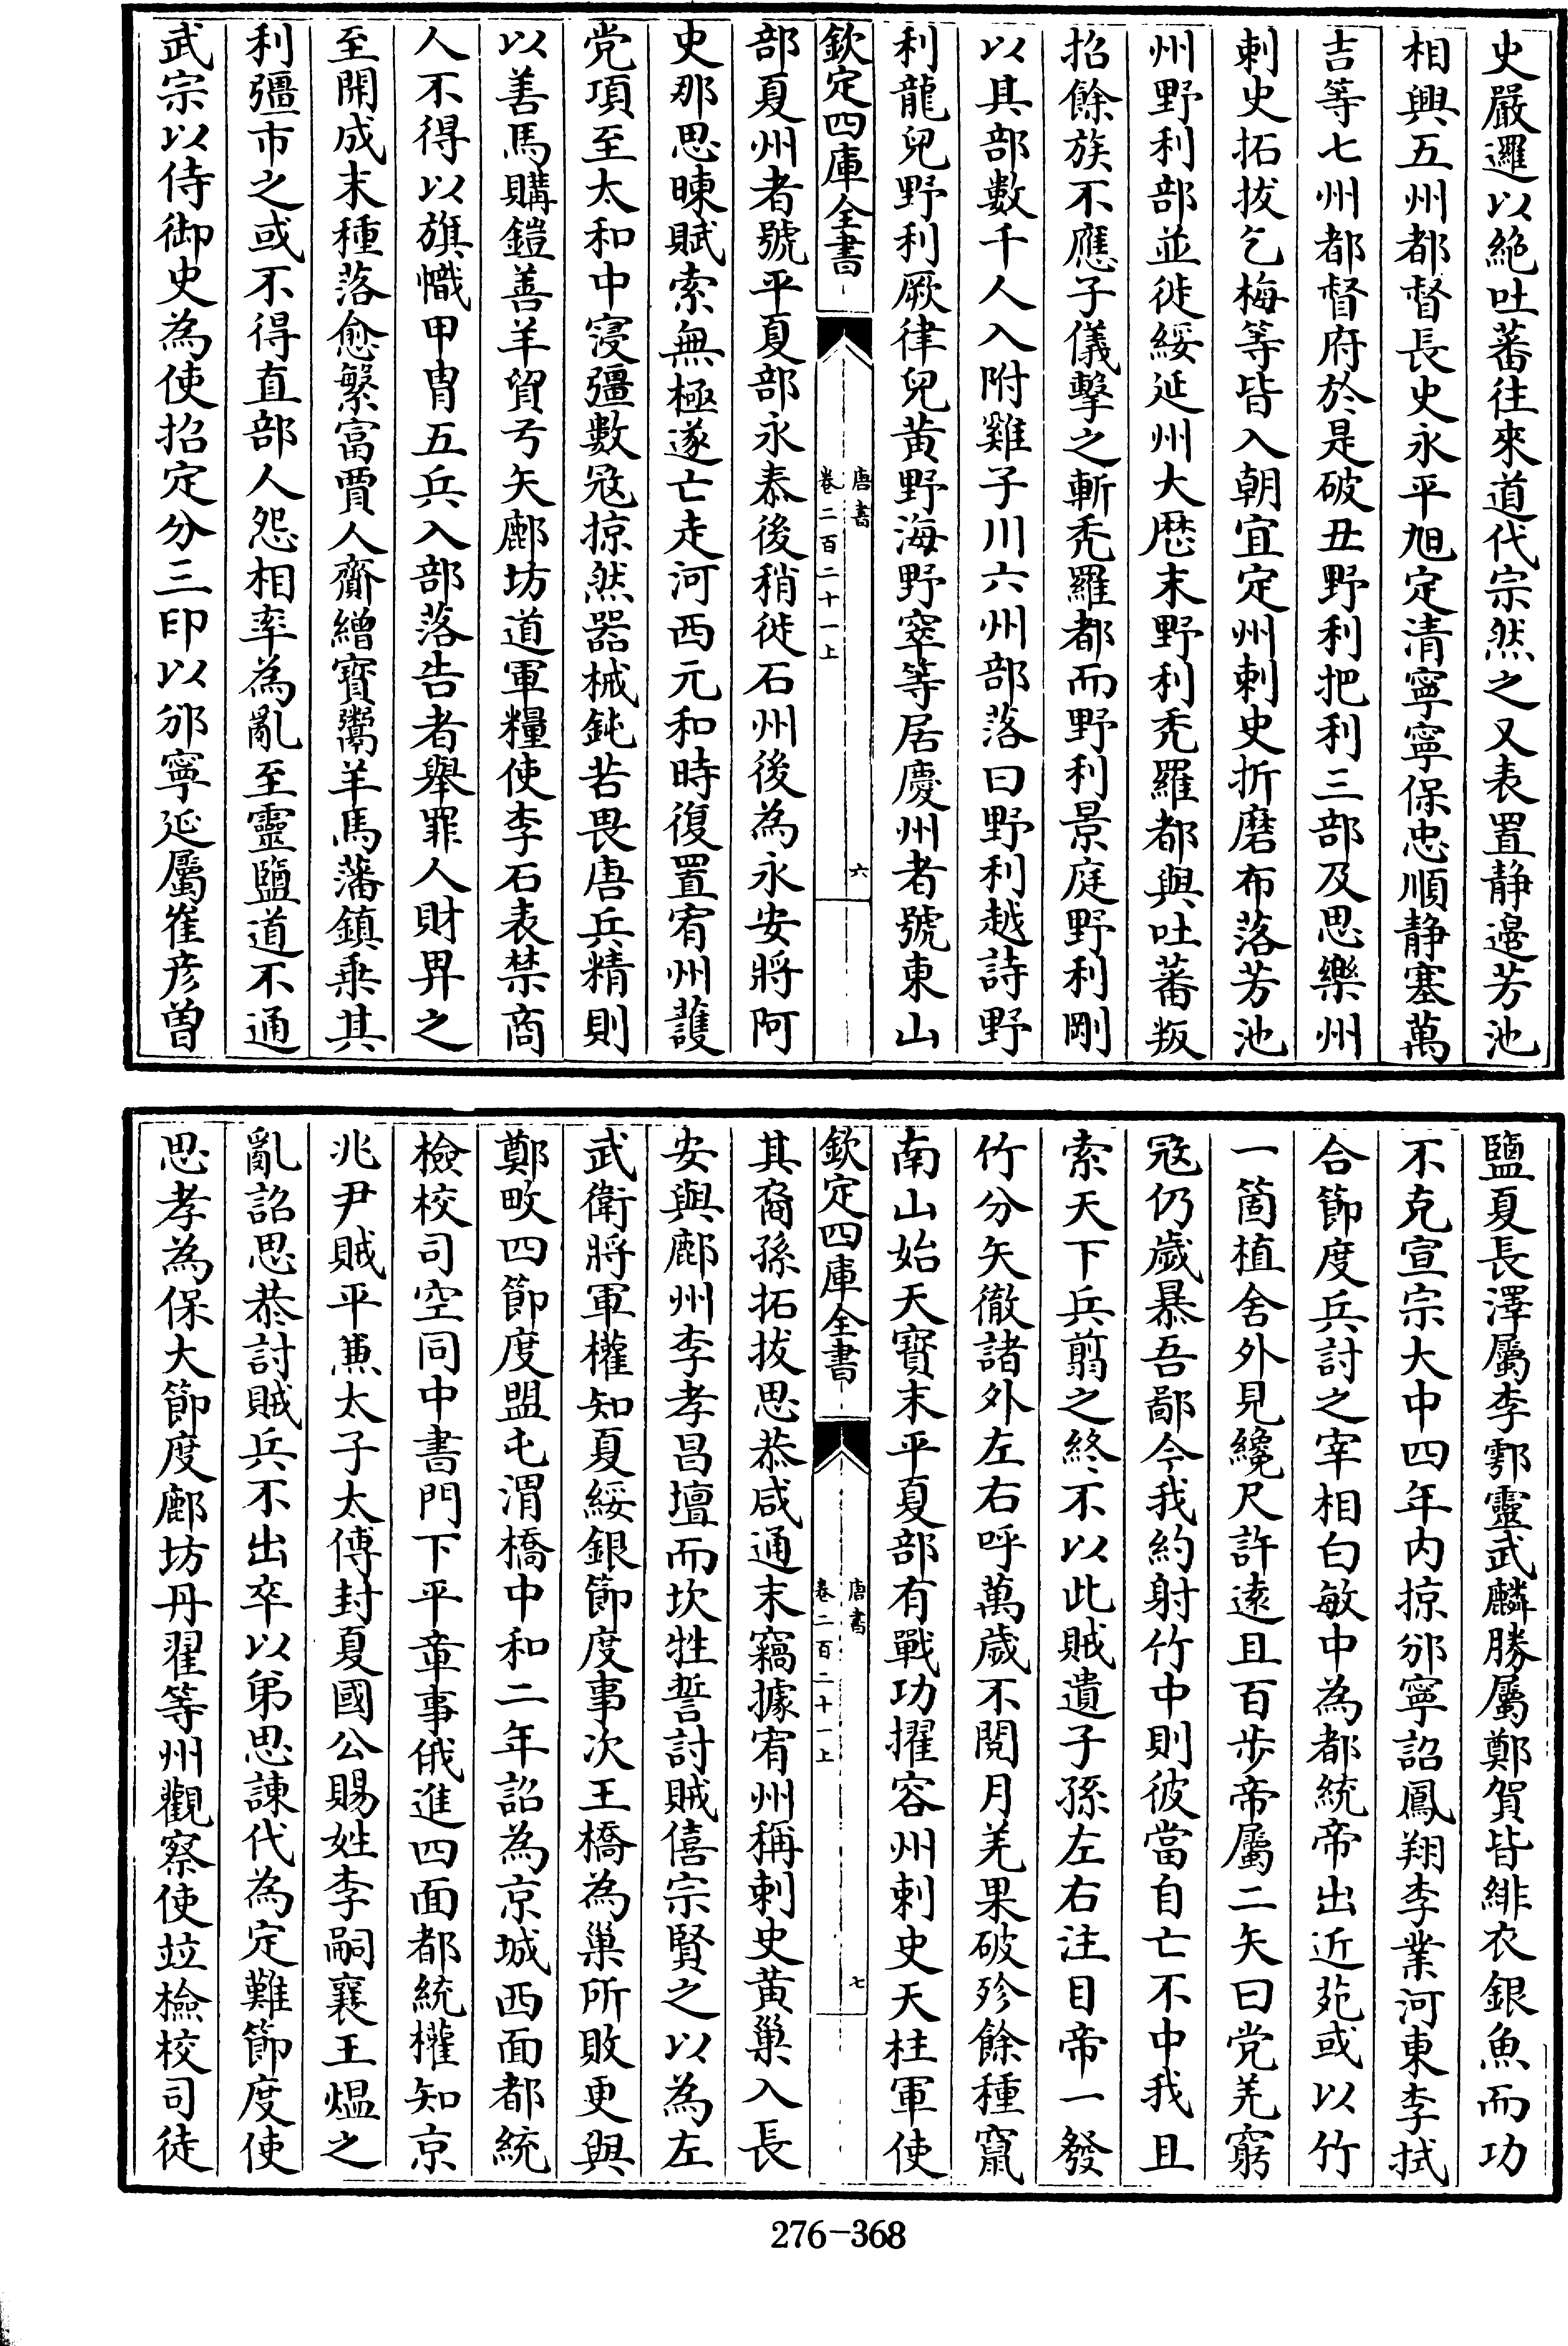 史嚴邏以絶吐蕃往來道代宗然之又表置静邉芳池
相興五州都督長史永平旭定清寧寧保忠順静塞萬
吉等七州都督府於是破丑野利把利三部及思樂州
刺史拓拔乞梅等皆入朝宜定州刺史折磨布落芳池
州野利部並徙綏延州大厯末野利秃羅都與吐蕃叛
招餘族不應子儀擊之斬秃羅都而野利景庭野利剛
以其部數千人入附雞子川六州部落曰野利越詩野
利龍兒野利厥律兒黄野海野窣等居慶州者號東山
欽定四庫全書
唐書
卷二百二十一上
六
部夏州者號平夏部永泰後稍徙石州後為永安將阿
史那思暕賦索無極遂亡走河西元和時復置宥州䕶
党項至太和中寖彊數宼掠然器械鈍苦畏唐兵精則
以善馬購鎧善羊貿弓矢鄜坊道軍糧使李石表禁商
人不得以旗幟甲胄五兵入部落告者舉罪人財畀之
至開成末種落愈繁富賈人齎繒寳鬻羊馬藩鎮乗其
利彊市之或不得直部人怨相率為亂至靈鹽道不通
武宗以侍御史為使招定分三印以邠寧延屬崔彦曽
鹽夏長澤屬李鄠靈武麟勝屬鄭賀皆緋衣銀魚而功
不克宣宗大中四年内掠邠寧詔鳳翔李業河東李拭
合節度兵討之宰相白敏中為都統帝出近苑或以竹
一箇植舍外見纔尺許逺且百步帝屬二矢曰党羌窮
宼仍歲暴吾鄙今我約射竹中則彼當自亡不中我且
索天下兵翦之終不以此賊遺子孫左右注目帝一發
竹分矢徹諸外左右呼萬歲不閱月羌果破殄餘種竄
南山始天寳末平夏部有戰功擢容州刺史天柱軍使
欽定四庫全書
唐書
卷二百二十一上
七
其裔孫拓拔思恭咸通末竊據宥州稱刺史黄巢入長
安與鄜州李孝昌壇而坎牲誓討賊僖宗賢之以為左
武衛將軍權知夏綏銀節度事次王橋為巢所敗更與
鄭畋四節度盟屯渭橋中和二年詔為京城西面都統
檢校司空同中書門下平章事俄進四面都統權知京
兆尹賊平兼太子太傅封夏國公賜姓李嗣襄王熅之
亂詔思恭討賊兵不出卒以弟思諫代為定難節度使
思孝為保大節度鄜坊丹翟等州觀察使竝檢校司徒
276-368